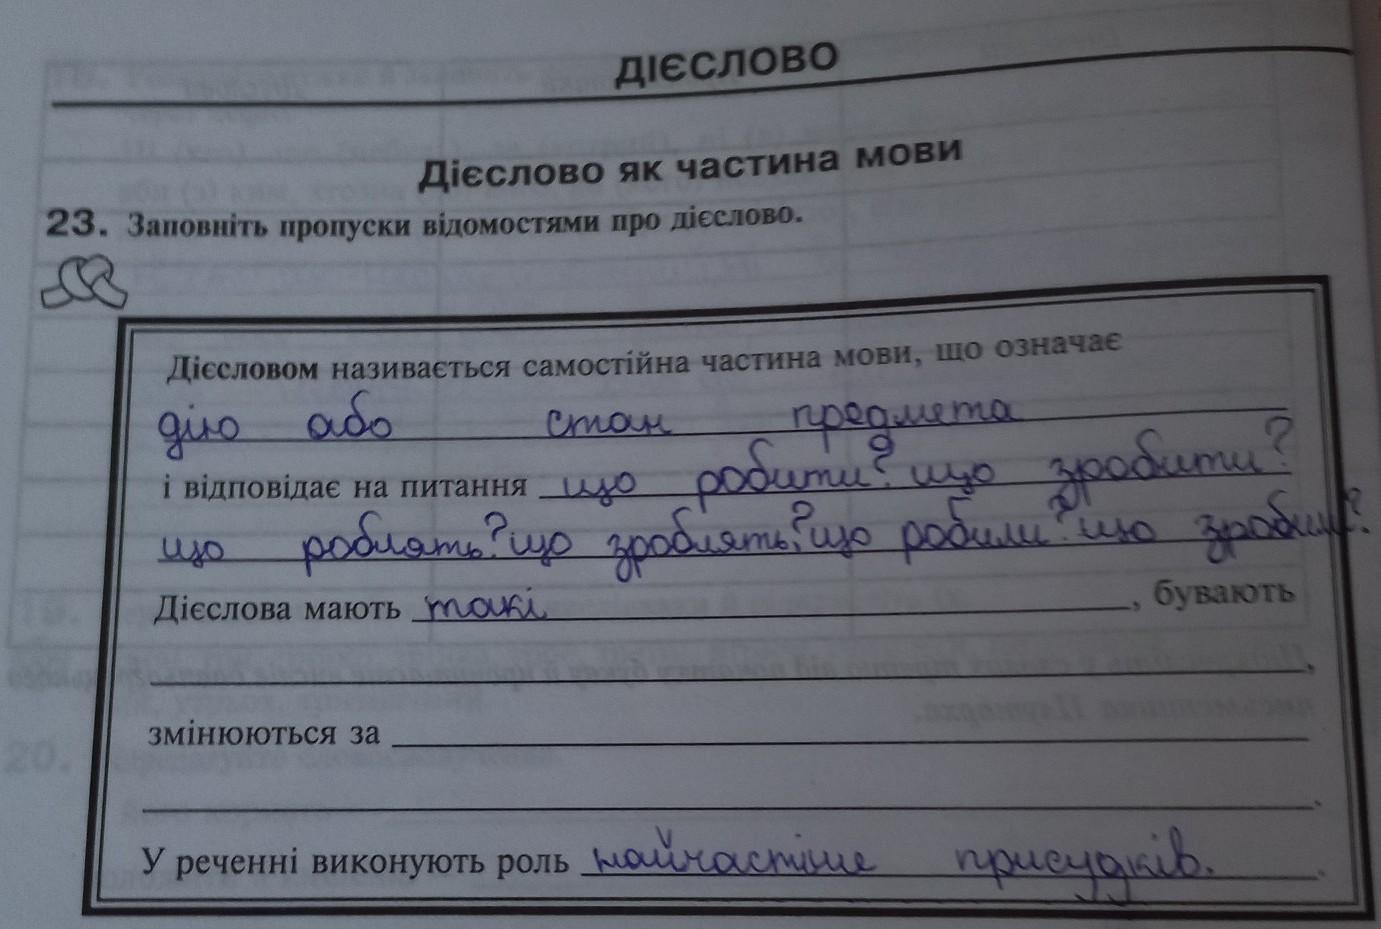 ДІЄСЛОВО
Дієслово як частина мови
23. Заповніть пропуски відомостями про дієслово.
Дієсловом називається самостійна частина мови, що означає
дію або стан предмета
і відповідає на питання що робити? що зробити?
що роблять? що зроблять? що робили? що зробили?
Дієслова мають такі, бувають
змінюються за
У реченні виконують роль найчастіше присудків.
20.